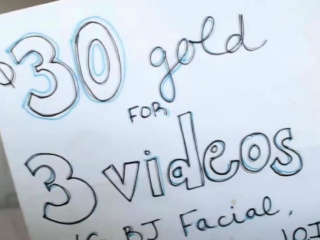 $30 gold
FOR
3 videos
BJ Facial,